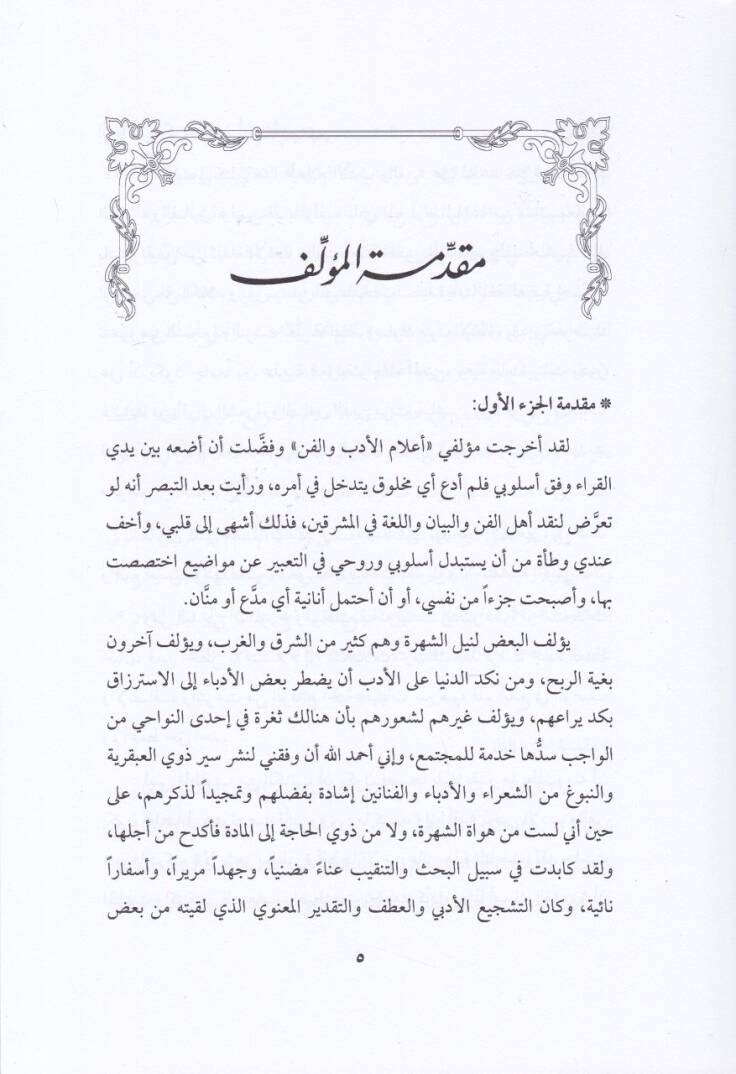 مقدِّمة المؤلِّف
* مقدمة الجزء الأول:
لقد أخرجت مؤلفي «أعلام الأدب والفن» وفضَّلت أن أضعه بين يدي
القراء وفق أسلوبي فلم أدع أي مخلوق يتدخل في أمره، ورأيت بعد التبصر أنه لو
تعرَّض لنقد أهل الفن والبيان واللغة في المشرقين، فذلك أشهى إلى قلبي، وأخف
عندي وطأة من أن يستبدل أسلوبي وروحي في التعبير عن مواضيع اختصصت
بها، وأصبحت جزءاً من نفسي، أو أن أحتمل أنانية أي مدَّع أو منَّان.
يؤلف البعض لنيل الشهرة وهم كثير من الشرق والغرب، ويؤلف آخرون
بغية الربح، ومن نكد الدنيا على الأدب أن يضطر بعض الأدباء إلى الاسترزاق
بكد يراعهم، ويؤلف غيرهم لشعورهم بأن هنالك ثغرة في إحدى النواحي من
الواجب سدُّها خدمة للمجتمع، وإني أحمد الله أن وفقني لنشر سير ذوي العبقرية
والنبوغ من الشعراء والأدباء والفنانين إشادة بفضلهم وتمجيداً لذكرهم، على
حين أني لست من هواة الشهرة، ولا من ذوي الحاجة إلى المادة فأكدح من أجلها،
ولقد كابدت في سبيل البحث والتنقيب عناءً مضنياً، وجهداً مريراً، وأسفاراً
نائية، وكان التشجيع الأدبي والعطف والتقدير المعنوي الذي لقيته من بعض
٥